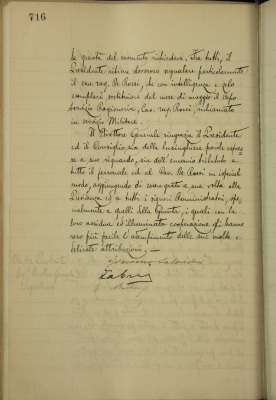 716
la gravità del momento richiedeva. Fra tutti, il
Presidente ritiene doveroso segnalare particolarmente
il cav. rag. De Rossi, che con intelligenza e zelo
compie le sostituzioni del mese di maggio il Capo
Servizio Ragioneria, Cav. rag. Rossi, richiamato
in servizio Militare.
Il Direttore Generale ringrazia il Presidente
ed il Consiglio, sia della lusinghiera parola espres-
sa a suo riguardo, sia dell'encomio tributato a
tutto il personale ed al Cav. De Rossi in ispecial
modo, aggiungendo di esser grato a sua volta alla
Presidenza ed a tutti i signori Amministratori, spe-
cialmente a quelli della Giunta, i quali con la
loro assidua ed illuminata cooperazione gli hanno
reso più facile l'adempimento delle sue molte e
delicate attribuzioni. —